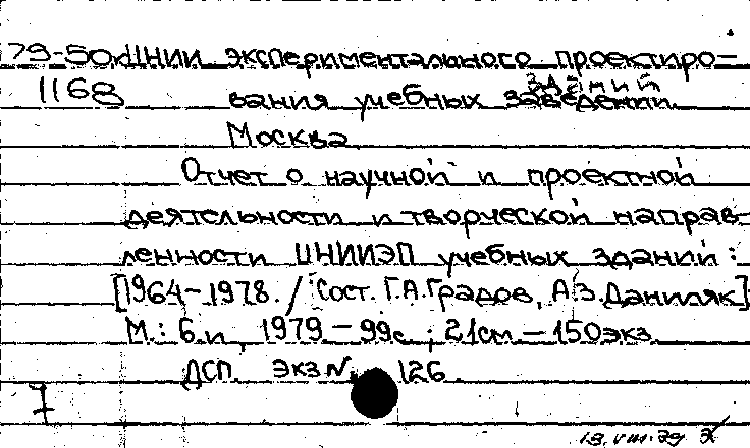 79-50к ЦНИИ экспериментального проектиро-
1168 вания учебных заведений зданий
Москва
Отчет о научной и проектной
деятельности и творческой направ-
ленности ЦНИИЭП учебных зданий:
[1964-1978. / Сост. Г.А.Градов, А.З.Даниляк]
М.: б.и, 1979 - 99с.; 21см - 150экз.
ДСП. Экз N 126
7
13.VIII.79